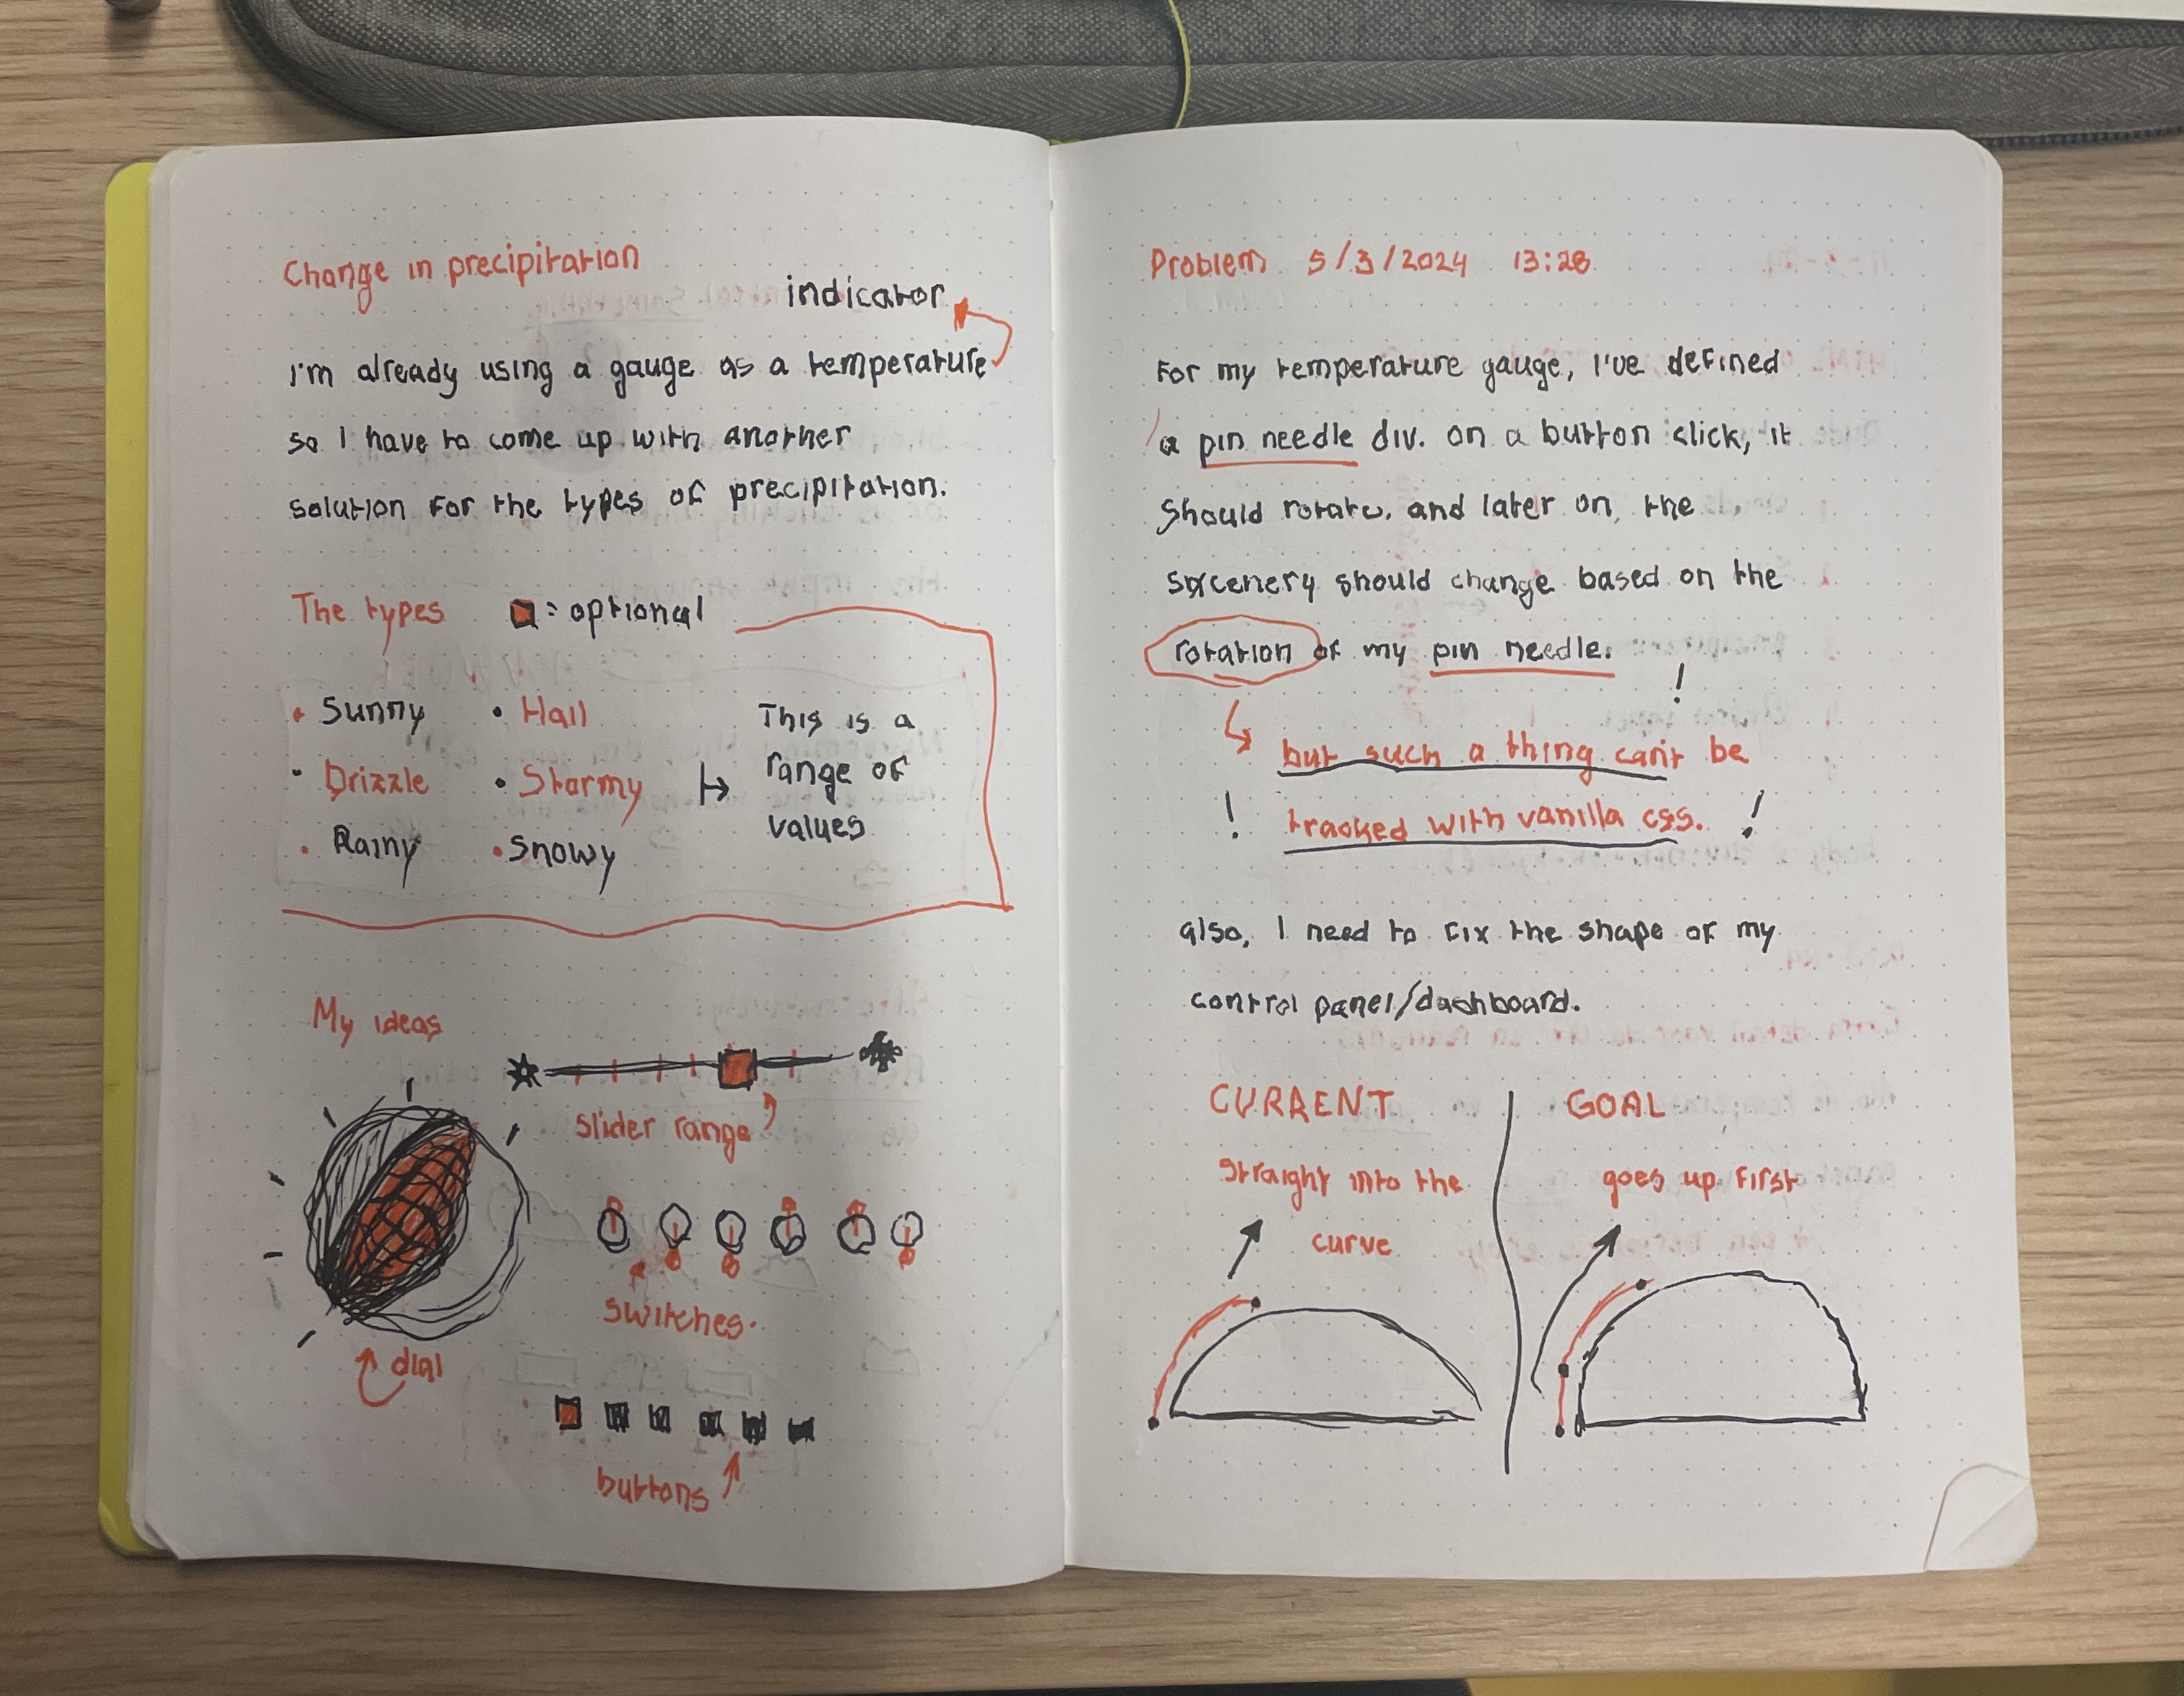 Change in precipitation
indicator
I'm already using a gauge as a temperature
so I have to come up with another
solution for the types of precipitation.
The types = optional
• Sunny • Hail
• Drizzle • Stormy
• Rainy • Snowy
This is a
range of
values
My ideas
slider range
switches.
dial
buttons
Problem 5/3/2024 13:28
For my temperature gauge, I've defined
a pin needle div. on a button click, it
should rotate. and later on, the
scenery should change based on the
rotation of my pin needle.
!
but such a thing can't be
! tracked with vanilla css. !
also, I need to fix the shape of my
control panel/dashboard.
CURRENT
straight into the
curve
GOAL
goes up first